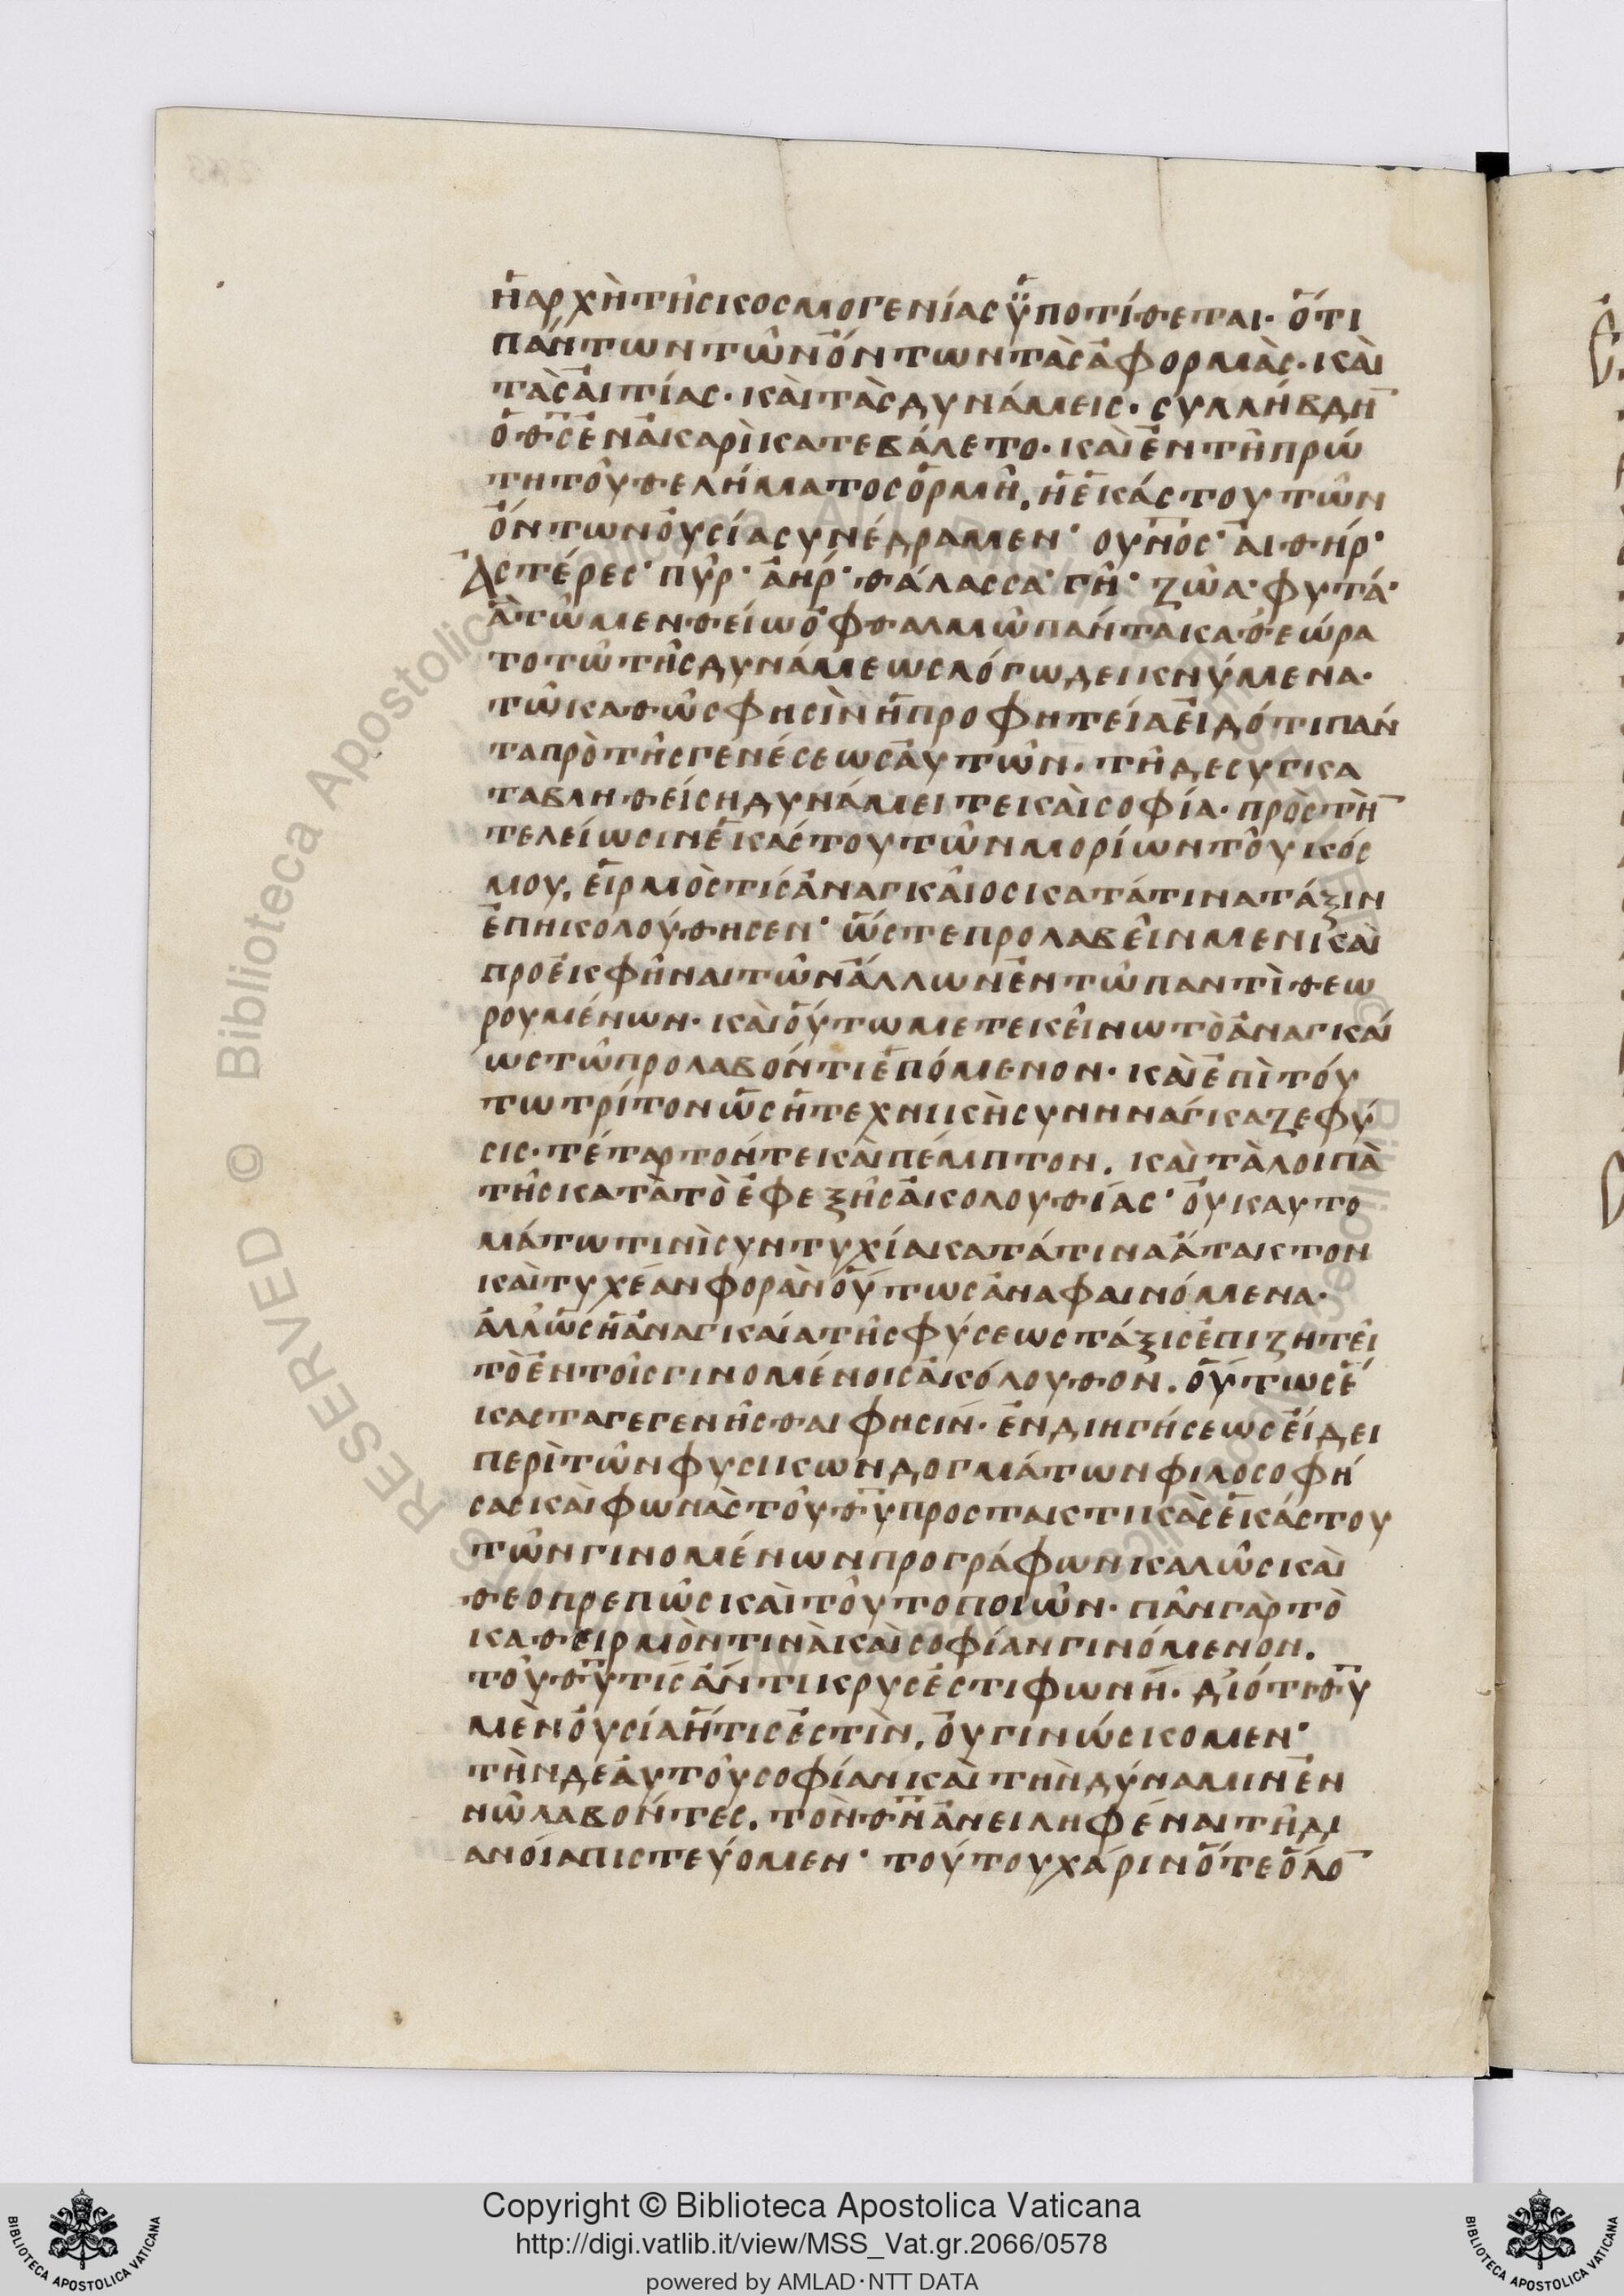 ἡ ἀρχὴ τῆς κοσμογενίας ὑποτίθεται· ὅτι
πάντων τῶν ὄντων τὰς ἀφορμὰς· καὶ
τὰς αἰτίας· καὶ τὰς δυνάμεις· συλλήβδη̄
ὁ θ̅ς̅ ἐν ἀκαρὶ κατεβάλετο· καὶ ἐν τῆ πρώ
τη τοῦ θελήματος ὁρμῆ. ἡ ἑκάστου τῶν
ὄντων οὐσία συνέδραμεν· ουν̅ος· αἰθήρ·
Ἀστέρες· πῦρ· ἀήρ· θάλασσα· γῆ· ζῶα· φυτά·
ἃ τῶ μεν θείω ὀφθαλμῶ πάντα καθεώρα
το τῶ τῆς δυνάμεως λόγω δεικνύμενα·
τῶ καθώς φησὶν ἡ προφητεία εἰδότι πάν
τα πρὸ τῆς γενέσεως αὐτῶν· τῆ δε συγκα
ταβληθείση δυνάμει τε καὶ σοφία· πρὸς τὴ̄
τελείωσιν ἑκάστου τῶν μορίων τοῦ κόσ
μου, εἱρμὸς τίς ἀναγκαῖος κατά τινα τάξιν
ἐπηκολούθησεν· ὥστε προλαβεῖν μεν καὶ
προεκφῆναι τῶν ἄλλων ἐν τῶ παντὶ θεω
ρουμένων· καὶ οὕτω μετεκεῖνω τὸ ἀναγκαί
ως τῶ προλαβόντι ἑπόμενον· καὶ ἐπὶ τού
τω τρίτον ὡς ἡ τεχνικὴ συνηνάγκαζε φύ
σις· τέταρτόν τε καὶ πέμπτον. καὶ τὰ λοιπὰ
τῆς κατὰ τὸ ἐφεξῆς ἀκολουθίας· οὐκ αυτο
μάτω τινὶ συντυχία κατά τινα ἄτακτον
καὶ τυχέαν φορὰν οὕτως ἀναφαινόμενα·
ἀλλ' ὡς ἡ ἀναγκαία τῆς φύσεως τάξις ἐπιζητεῖ
τὸ ἐν τοῖς γινομένοις ἀκόλουθον. οὕτως ἕ
καστα γεγενῆσθαι φησίν· ἐν διηγήσεως εἴδει
περὶ τῶν φυσικων δογμάτων φιλοσοφή
σας καὶ φωνὰς τοῦ θ̅υ̅ προστακτικὰς ἑκάστου
τῶν γινομένων προγράφων καλῶς καὶ
θεοπρεπῶς καὶ τοῦτο ποιῶν· πᾶν γὰρ τὸ
καθειρμὸν τινὰ καὶ σοφίαν γινόμενον.
τοῦ θ̅υ̅ τίς ἄντικρυς ἐστι φωνή. διότι θ̅υ̅
μὲν οὐσία ἥτις ἐστὶν, οὐ γινώσκομεν·
τὴν δε αὐτοῦ σοφίαν καὶ τὴν δύναμιν ἐν
νῶ λαβόντες. τὸν θ̅ν̅ ἀνειληφέναι τῆ δι
ανοία πιστεύομεν· τούτου χάριν ὅτε ὅλο̄
Copyright © Biblioteca Apostolica Vaticana
http://digi.vatlib.it/view/MSS_Vat.gr.2066/0578
powered by AMLAD·NTT DATA